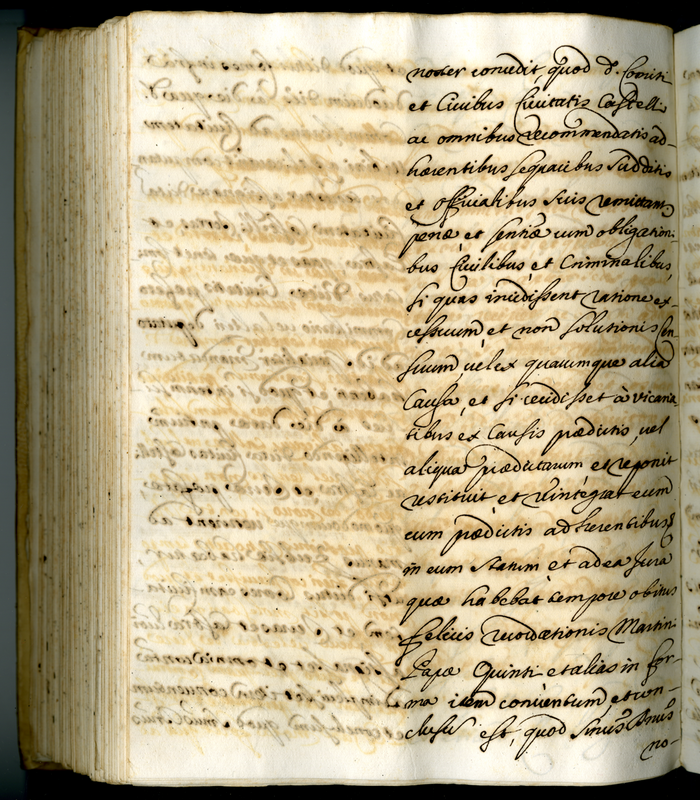 noster concedit, quod d. Comiti
et Civibus Civitatis Castelli
ac omnibus recommendatis ad-
hærentibus sequacibus subditis
et offitialibus suis remittant
pœnæ et sentiæ cum obligationi-
bus Civilibus, et Criminalibus,
si quas incidissent ratione ex-
cessuum et non solutionis Cen-
suum, vel ex quacumque alia
Causa, et si cecidisset à vicaria-
tibus ex Causis prædictis, vel
aliqua prædictarum et reponit
restituit et reintegrat eum
cum prædictis adherentibus
in eum statum et ad ea Jura
quæ habebat tempore obitus
felicis recordationis Martini
Papæ Quinti et alias in for-
ma item conventum et con-
clusũ est, quod Dnus
no-